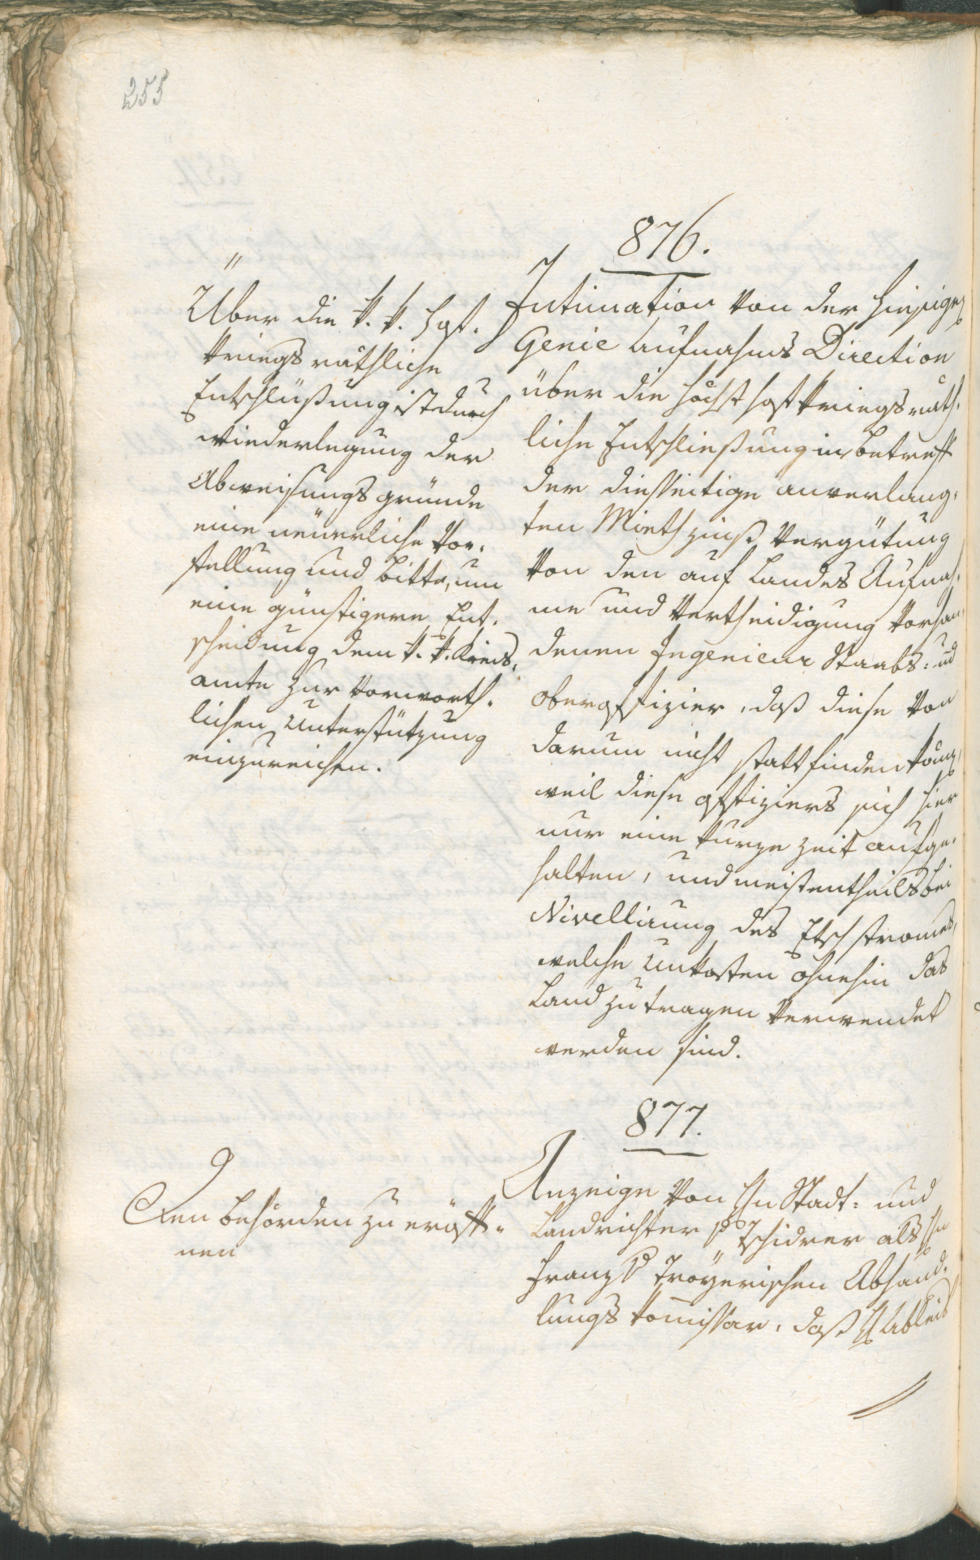 255
876.
Über die k. k. hof-
kriegsräthliche
Entschlüßung ist durch
Wiederlegung der
Abweisungsgründe
eine neüerliche Vor-
stellung und bitte, um
eine günstigere Ent-
scheidung dem k. k. Kreis-
amte zur vorworth-
lichen Unterstützung
einzureichen.
Intimation von der hiesigen
Genie Aufnahms Direction
über die höchst hofkriegsräth-
liche Entschließung in betreff
der diesseitige anverlang-
ten Miethzinß Vergütung
von den auf Landes Aufnah-
me und Vertheidigung vorhan-
denen Ingenieur Staabs- und
oberoffizier, daß diese von
darum nicht stattfinden könne,
weil diese offiziers sich hier
nur eine kurze zeit aufge-
halten, und meistentheils bei
Nivellirung des Etschstromes,
welche Unkosten ohnehin das
Land zu tragen verwendet
werden sind.
877.
Den behörden zu eröff-
nen
Anzeige von H̄n Stadt- und
Landrichter v Tschidrer als H̄n
Franz v Troÿerischen Abhand-
lungs Kom̄issär, daß H̄